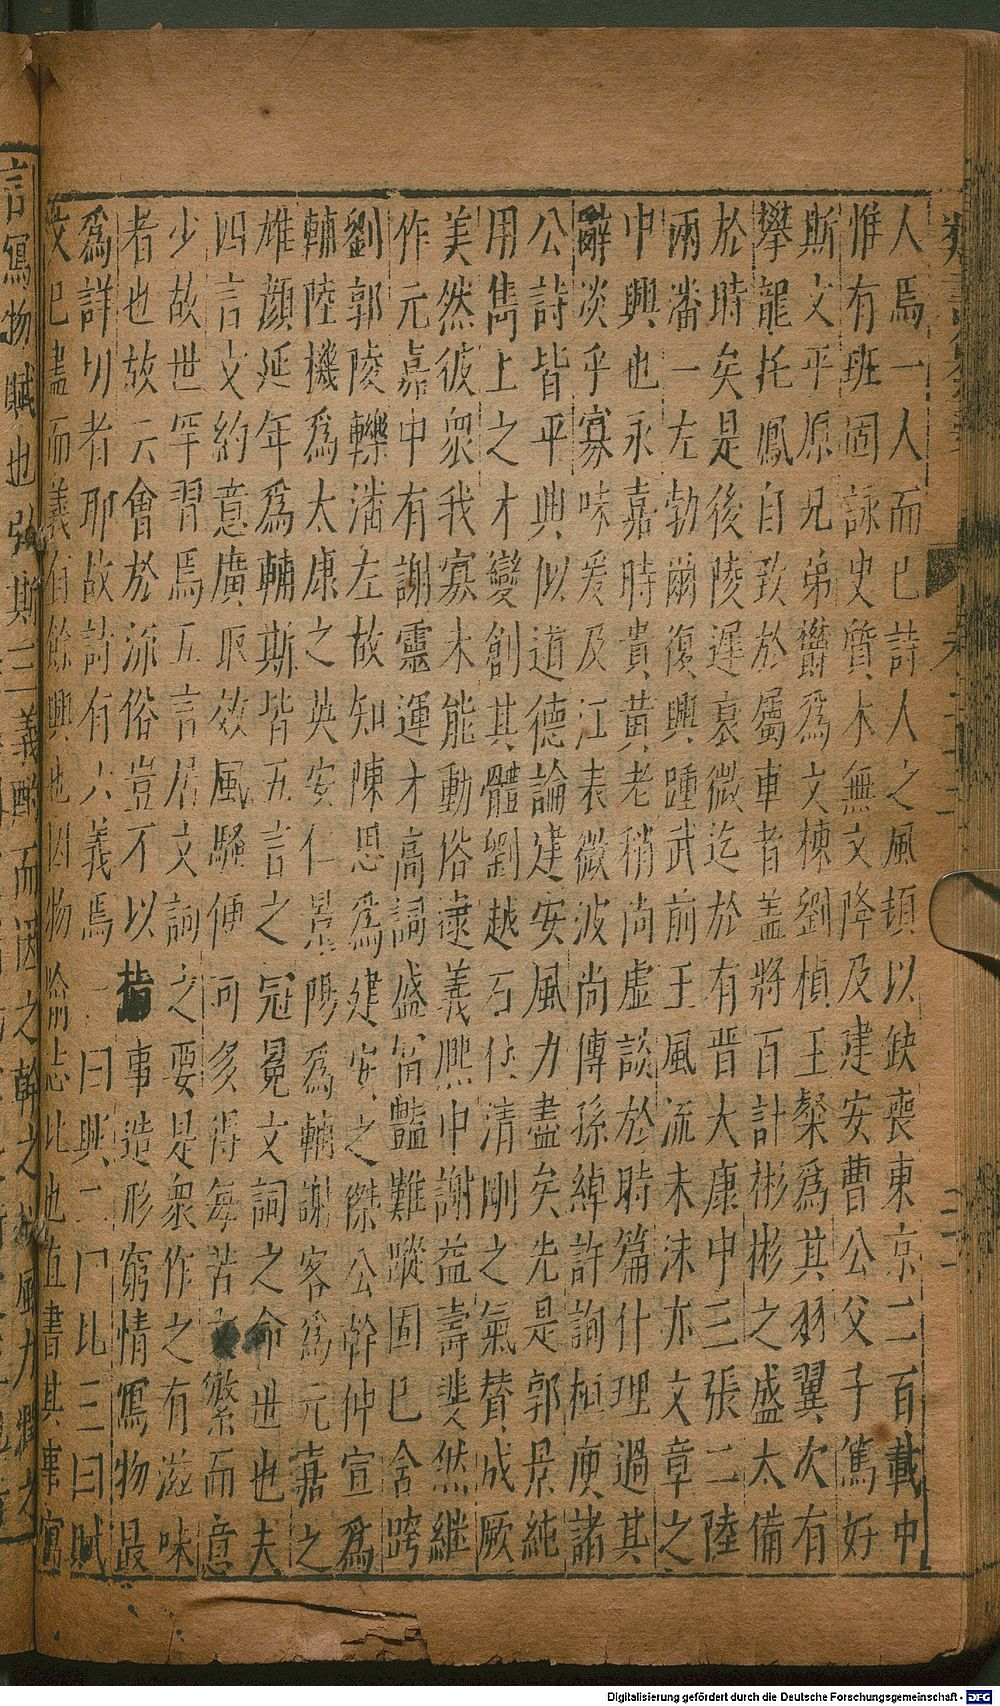 人焉一人而已詩人之風頓以缺喪東京二百載中
惟有班固詠史質木無文降及建安曹公父子篤好
斯文平原兄弟欝爲文棟劉楨王粲爲其羽翼次有
攀龍托鳳自致於屬車者盖將百計彬彬之盛太備
於時矣是後陵遲衰微迄於有晋大康中三張二陸
兩潘一左勃爾復興踵武前王風流未沫亦文章之
中興也永嘉時貴黃老稍尚虛談於時篇什理過其
辭淡乎寡味爰及江表微波尚傳孫綽許詢桓庾諸
公詩皆平典似道德論建安風力盡矣先是郭景純
用雋上之才變創其體劉越石仗清剛之氣賛成厥
美然彼衆我寡未能動俗逮義熈中謝益壽斐然繼
作元嘉中有謝靈運才高詞盛富豔難蹤固已含跨
劉郭陵轢潘左故知陳思爲建安之傑公幹仲宣爲
輔陸機爲太康之英安仁景陽爲輔謝客爲元嘉之
雄顔延年爲輔斯皆五言之冠冕文詞之命世也夫
四言文約意廣取效風騷便可多得每苦文繁而意
少故世罕習焉五言居文詞之要是衆作之有滋味
者也故云會於流俗豈不以指事造形窮情寫物最
爲詳切者耶故詩有六義焉一曰興二曰比三曰賦
文已盡而義有餘興也因物喻志比也直書其事寓
言寫物賦也弘斯三義酌而因之幹之以風力潤之
Digitalisierung gefördert durch die Deutsche Forschungsgemeinschaft - DFG